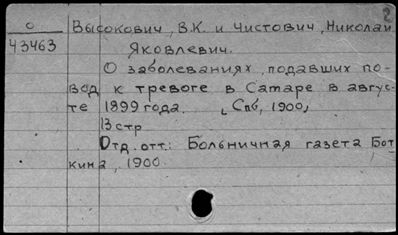 2
О Высокович, В.К. и Чистович, Николай
43463 Яковлевич.
О заболеваниях, подавших по-
вод к тревоге в Сатаре в авгус-
те 1899 года. [Спб, 1900,
13 стр
Отд. отт.: Больничная газета Бот
кина, 1900.